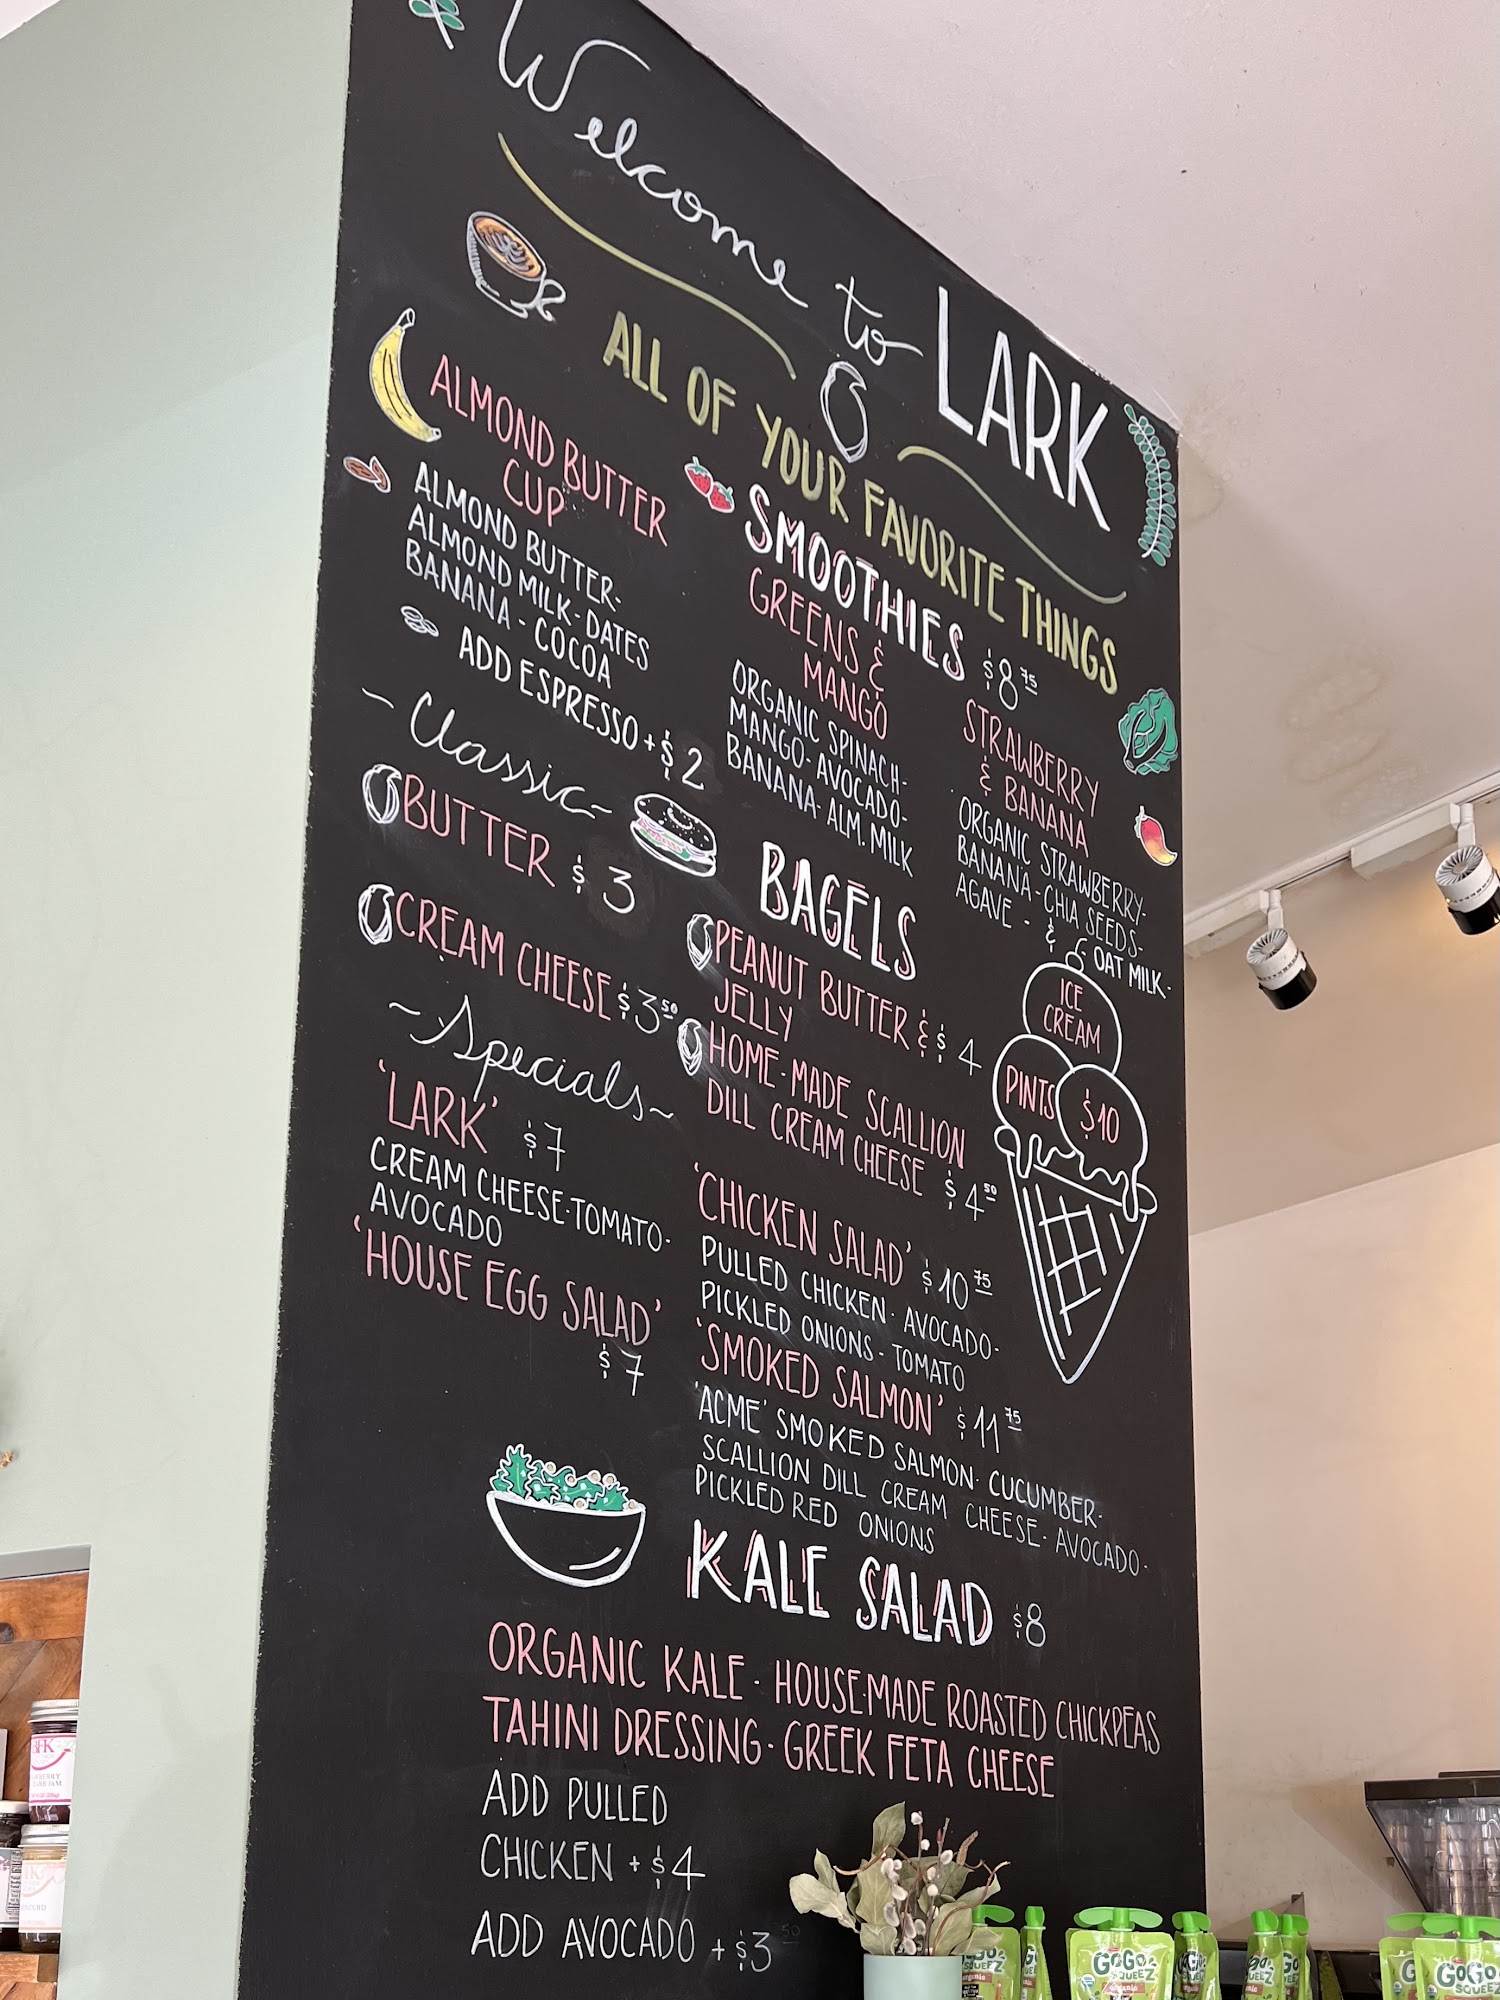 Welcome to LARK
ALL OF YOUR FAVORITE THINGS
SMOOTHIES $8.75
ALMOND BUTTER
CUP
ALMOND BUTTER-
ALMOND MILK-DATES
BANANA - COCOA
ADD ESPRESSO + $2
GREENS &
MANGO
ORGANIC SPINACH-
MANGO-AVOCADO-
BANANA-ALM. MILK
STRAWBERRY
& BANANA
ORGANIC STRAWBERRY-
BANANA-CHIA SEEDS-
AGAVE - &
OAT MILK-
BAGELS
~Classic~
BUTTER $3
CREAM CHEESE $3.50
PEANUT BUTTER & $4
JELLY
HOME-MADE SCALLION
DILL CREAM CHEESE $4.50
ICE
CREAM
PINTS $10
~Specials~
'LARK' $7
CREAM CHEESE·TOMATO·
AVOCADO
'HOUSE EGG SALAD'
$7
'CHICKEN SALAD' $10.75
PULLED CHICKEN· AVOCADO-
PICKLED ONIONS - TOMATO
'SMOKED SALMON' $11.75
'ACME' SMOKED SALMON· CUCUMBER-
SCALLION DILL CREAM CHEESE· AVOCADO·
PICKLED RED ONIONS
KALE SALAD $8
ORGANIC KALE · HOUSE·MADE ROASTED CHICKPEAS
TAHINI DRESSING · GREEK FETA CHEESE
ADD PULLED
CHICKEN + $4
ADD AVOCADO + $3.50
GOGO
SQUEEZ
organic
GOGO
SQUEEZ